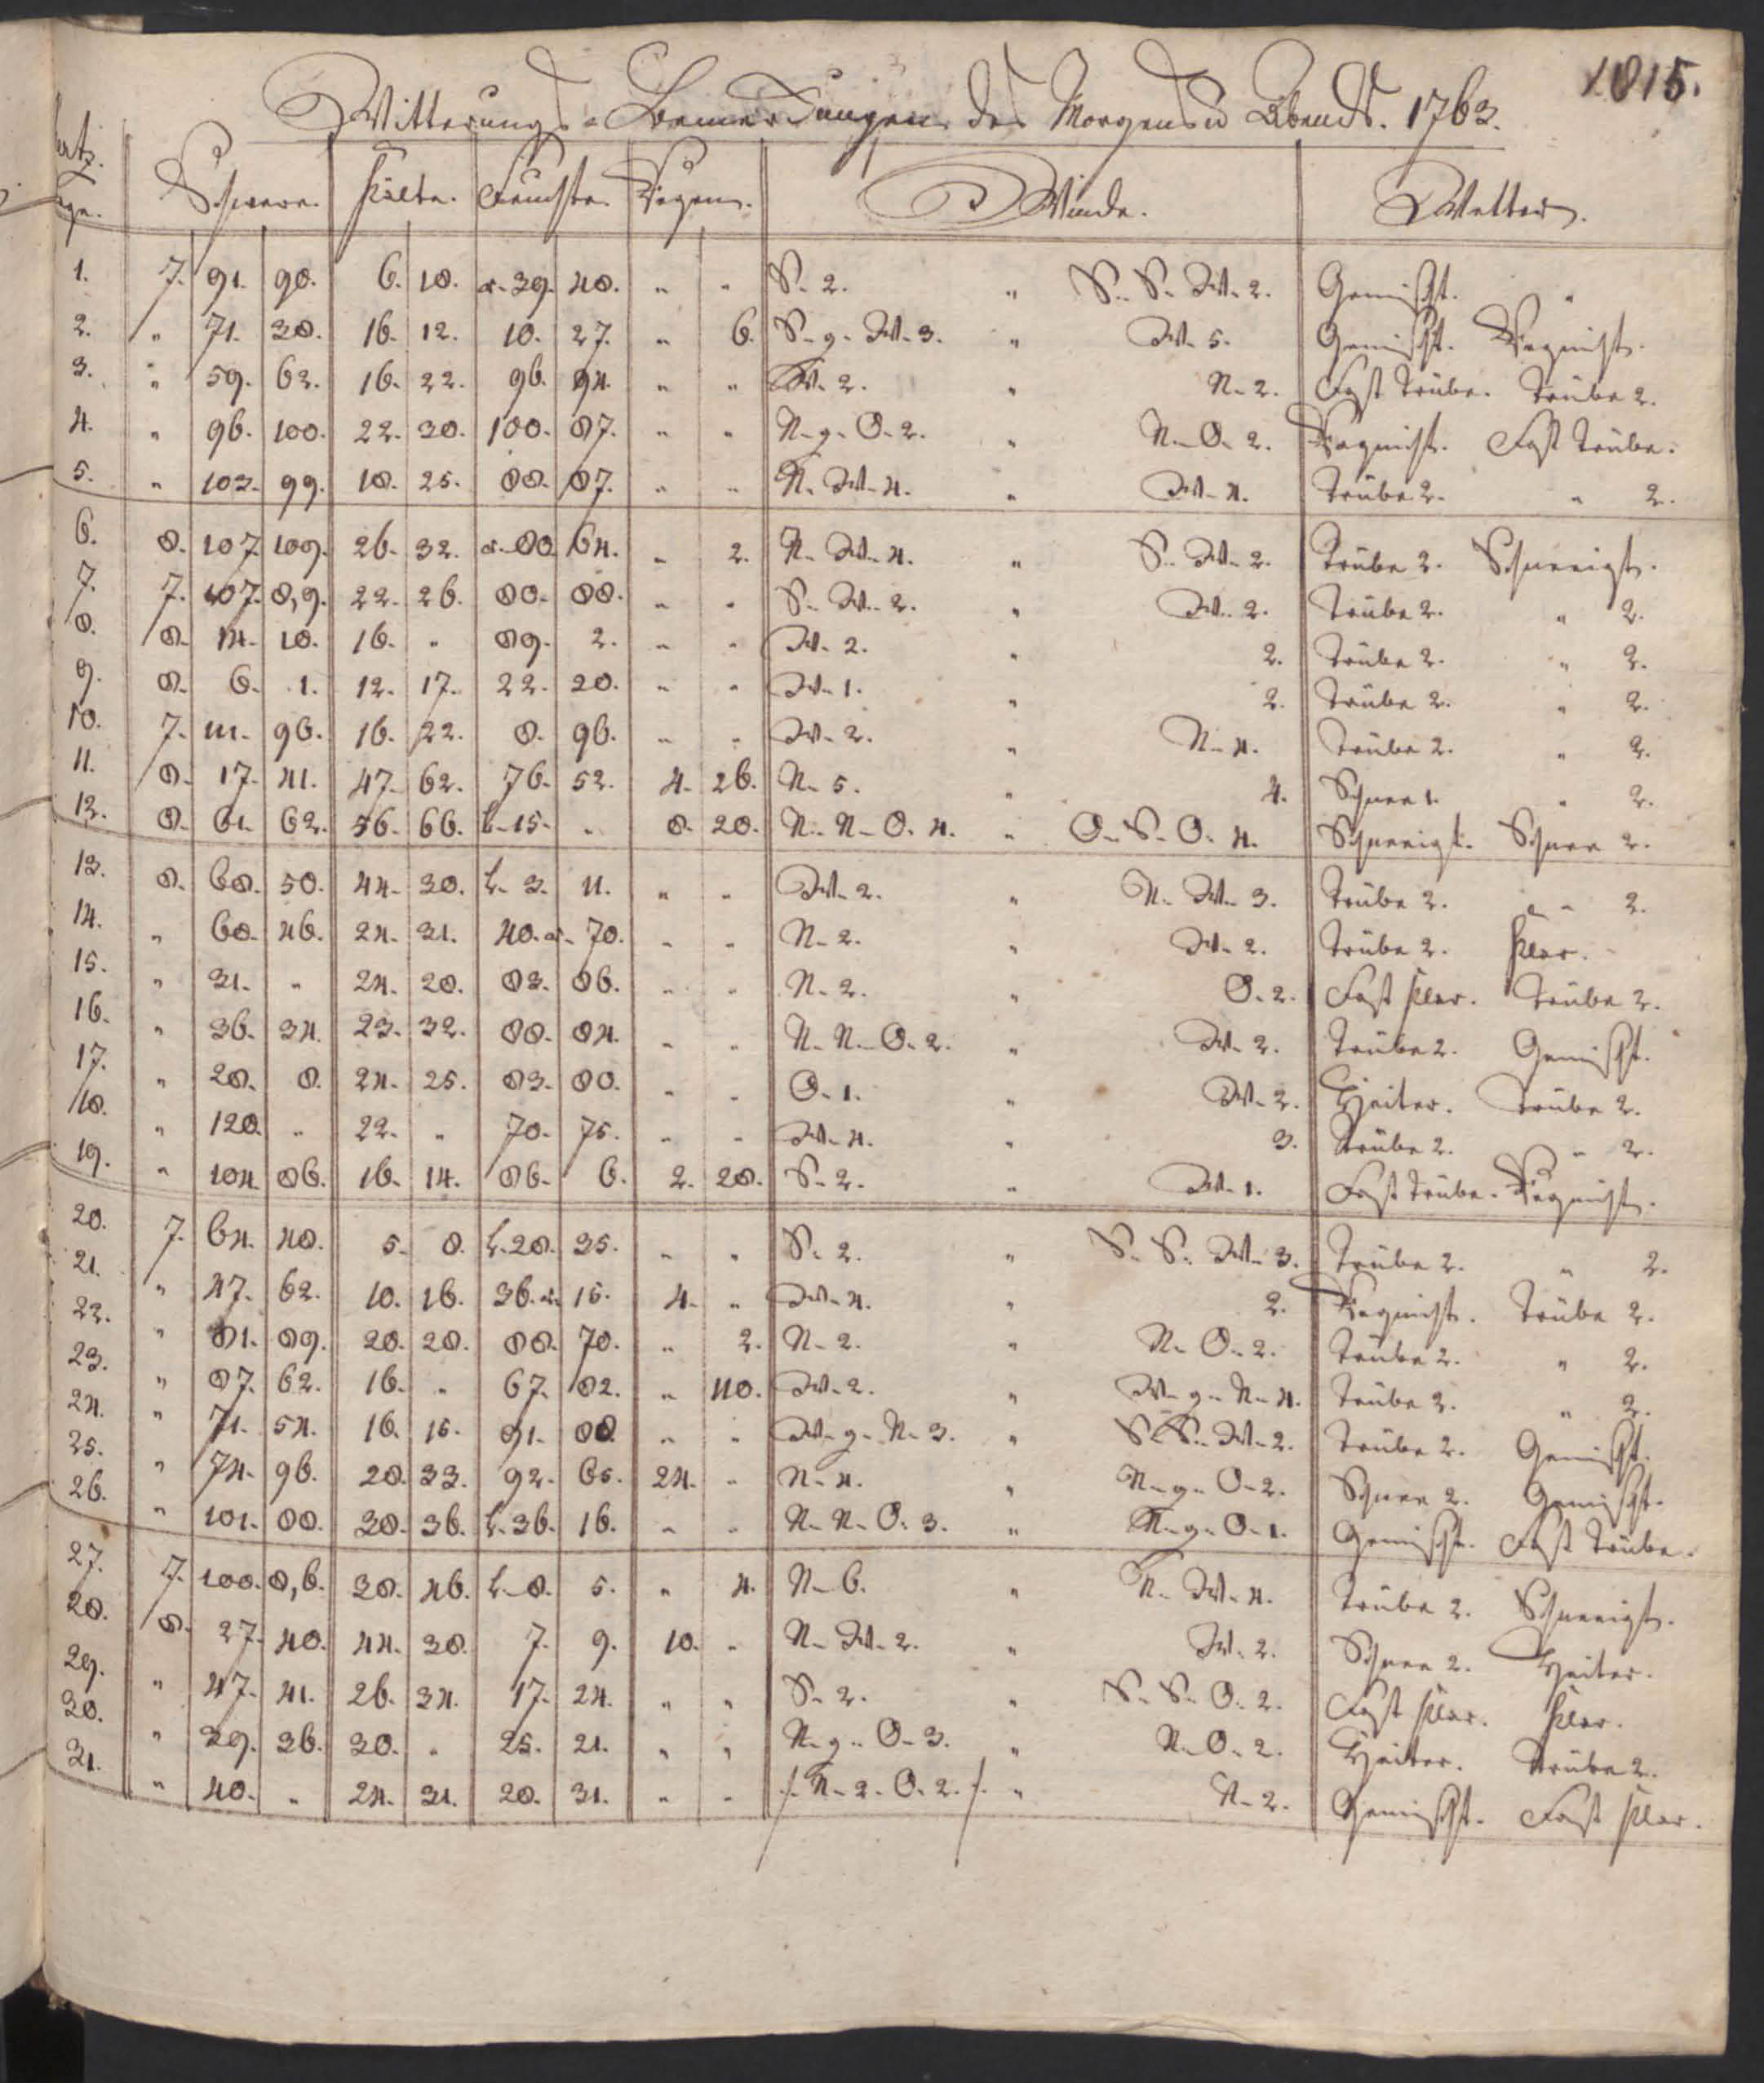 1815.
Witterungs-Bemerkungen des Morgens u Abends. 1763.
Schwere. Kälte. Feuchte. Regen. Winde. Wetter.
1. 7. 91. 90. 6. 10. a. 39. 48. " " S. 2. " S. S. W. 2. Gemischt. "
2. " 71. 38. 16. 12. 10. 27. " 6. S. g. W. 3. " W. 5. Gemischt. Regnicht.
3. " 59. 62. 16. 22. 96. 94. " " W. 2. " N. 2. Fast trübe. Trübe 2.
4. " 96. 100. 22. 30. 100. 87. " " N. g. O. 2. " N. O. 2. Regnicht. Fast trübe.
5. " 103. 99. 18. 25. 88. 87. " " N. W. 4. " W. 4. Trübe 2. " 2.
6. 8. 107. 109. 26. 32. a. 80. 64. " 2. N. W. 4. " S. W. 2. Trübe 2. Schneeigt.
7. 7. 107. 8,9. 22. 26. 80. 88. " " S. W. 2. " W. 2. Trübe 2. " 2.
8. 8. 14. 10. 16. " 89. 2. " " W. 2. " 2. Trübe 2. " 2.
9. 8. 6. 1. 12. 17. 22. 20. " " W. 1. " 2. Trübe 2. " 2.
10. 7. 111. 96. 16. 22. 8. 96. " " W. 2. " N. 4. Trübe 2. " 2.
11. 8. 17. 41. 47. 62. 76. 52. 4. 26. N. 5. " 4. Schnee 1. " 2.
12. 8. 61. 62. 56. 66. b. 15. " 8. 20. N. N. O. 4. " O. S. O. 4. Schneeigt. Schnee 2.
13. 8. 68. 50. 44. 30. b. 3. 11. " " W. 2. " N. W. 3. Trübe 2. " 2.
14. " 60. 46. 24. 31. 40. a. 70. " " N. 2. " W. 2. Trübe 2. Klar.
15. " 31. " 24. 28. 83. 86. " " N. 2. " O. 2. Fast klar. Trübe 2.
16. " 36. 34. 23. 32. 88. 84. " " N. N. O. 2. " W. 2. Trübe 2. Gemischt.
17. " 28. 8. 24. 25. 83. 80. " " O. 1. " W. 2. Heiter. Trübe 2.
18. " 120. " 22. " 70. 75. " " W. 4. " 3. Trübe 2. " 2.
19. " 104. 86. 16. 14. 86. 6. 2. 28. S. 2. " W. 1. Fast trübe. Regnicht.
20. 7. 64. 48. 5. 8. b. 28. 35. " " S. 2. " S. S. W. 3. Trübe 2. " 2.
21. " 47. 62. 10. 16. 36. a. 15. 4. " W. 4. " 2. Regnicht. Trübe 2.
22. " 81. 89. 20. 28. 88. 70. " 2. N. 2. " N. O. 2. Trübe 2. " 2.
23. " 87. 62. 16. " 67. 82. " 110. W. 2. " W. g. N. 4. Trübe 2. " 2.
24. " 71. 54. 16. 15. 91. 88. " " W. g. N. 3. " S. S. W. 2. Trübe 2. Gemischt.
25. " 74. 96. 28. 33. 92. 65. 24. " N. 4. " N. g. O. 2. Schnee 2. Gemischt.
26. " 101. 88. 30. 36. b. 36. 16. " " N. N. O. 3. " N. g. O. 1. Gemischt. Fast trübe.
27. 7. 100. 8,6. 38. 46. b. 8. 5. " 4. N. 6. " N. W. 4. Trübe 2. Schneeigt.
28. 8. 27. 40. 44. 38. 7. 9. 10. " N. W. 2. " W. 2. Schnee 2. Heiter.
29. " 47. 41. 26. 34. 17. 24. " " S. 2. " S. S. O. 2. Fast klar. Klar.
30. " 39. 36. 30. " 25. 21. " " N. g. O. 3. " N. O. 2. Heiter. Trübe 2.
31. " 40. " 24. 31. 20. 31. " " /. N. 2. O. 2. /. " N. 2. Gemischt. Fast klar.